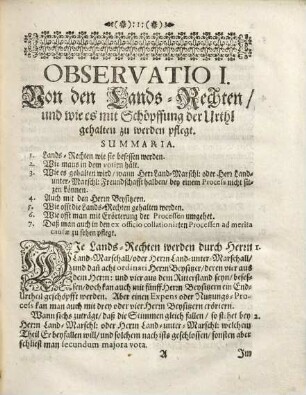 OBSERVATIO I.
Von den Lands-Rechten /
und wie es mit Schöpffung der Urthl
gehalten zu werden pflegt.
SUMMARIA.
1. Lands-Rechten wie sie besessen werden.
2. Wie mans in dem votiren hält.
3. Wie es gehalten wird / wann Herr Land-Marschl: oder Herr Land-
unter-Marschl: Freundschafft halben / bey einem Process nicht sit-
zen können.
4. Auch mit den Herrn Beysitzern.
5. Wie offt die Lands-Rechten gehalten werden.
6. Wie offt man mit Erörterung der Processen umgehet.
7. Daß man auch in den ex officio collationirten Processen ad merita
causæ zu sehen pflegt.
DIe Lands-Rechten werden durch Herrn 1.
Land-Marschall / oder Herrn Land-unter-Marschall /
und dañ acht ordinari Herrn Beysitzer / deren vier aus
dem Herrn: und vier aus dem Ritterstand seyn / beses-
sen / doch kan auch mit fünff Herrn Beysitzern ein End-
Urtheil geschöpfft werden. Aber einen Expens oder Nutzungs-Pro-
cess kan man auch mit drey oder vier Herrn Beysitzern erörtern.
Wann sichs zuträgt / daß die Stimmen gleich fallen / so stehet bey 2.
Herrn Land-Marschl: oder Herrn Land-unter-Marschl: welchem
Theil Er beyfallen will / und solchem nach ists geschlossen / sonsten aber
schliest man secundum majora vota.
A Im